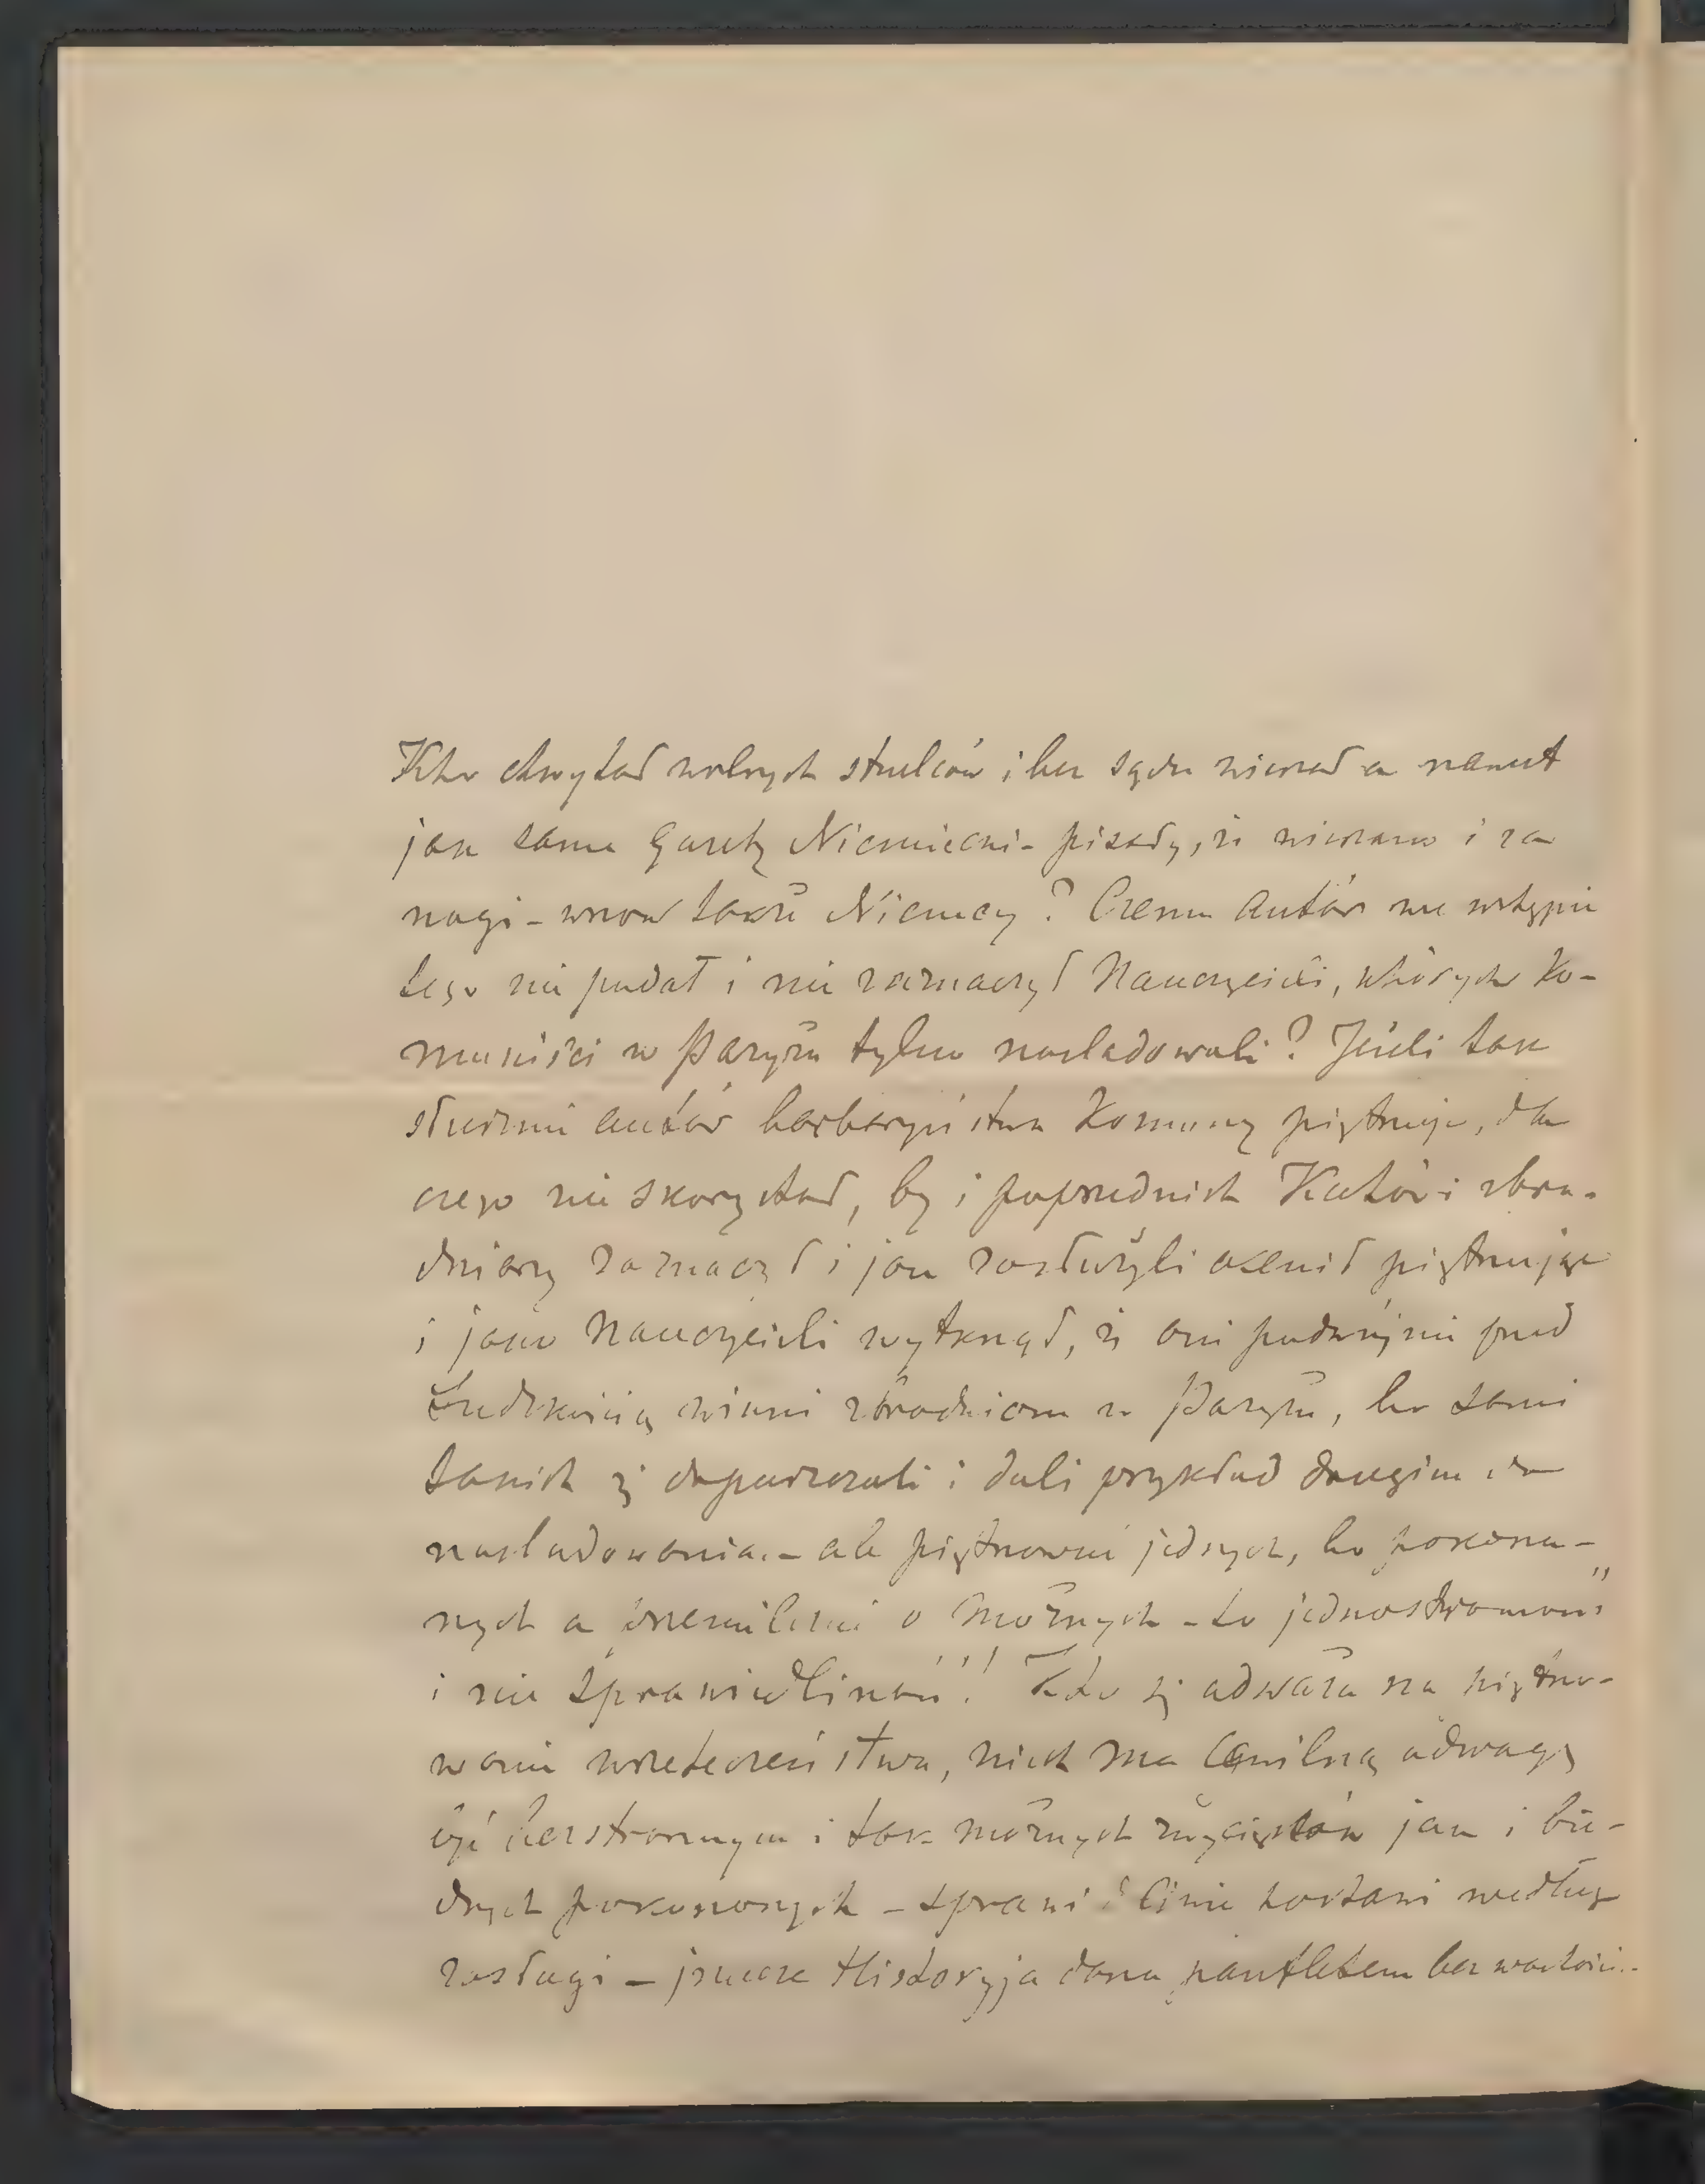 Kto chwytał wolnych strzelców i bez sądu wieszał a nawet
jak same Gazety Niemieckie pisały, iż wieszano i za
nogi - znów także Niemcy? Czemu Autór we wstępie
tego nie podał i nie zaznaczył Nauczycieli, których Ko-
muniści w Paryżu tylko nasladowali? Jeżeli tak
słusznie autór barbaryństwa Komuny piętnuje, dla
czego nie skorzystał, by i poprzednich Katów i zbro-
dniarzy zaznaczył i jak zasłużyli ocenił piętnując
i jako Nauczycieli wytknął, iż oni podwójnie przed
Ludzkością winni zbrodniom w Paryżu, bo sami
takich się dopuszczali i dali przykład drugim do
nasladowania. - ale piętnować jednych, bo pokona-
nych a przemilczeć o możnych - to jednostronność
i nie sprawiedliwość!! Kto się odważa na piętno-
wanie wszeteczeństwa, niech ma Cywilną odwagę
być bezstronnym i tak możnych zwycięzców jak i bie-
dnych pokonanych - sprawiedliwie kartać według
zasługi - jnacze Historyja daną pamfletem bez wartości..